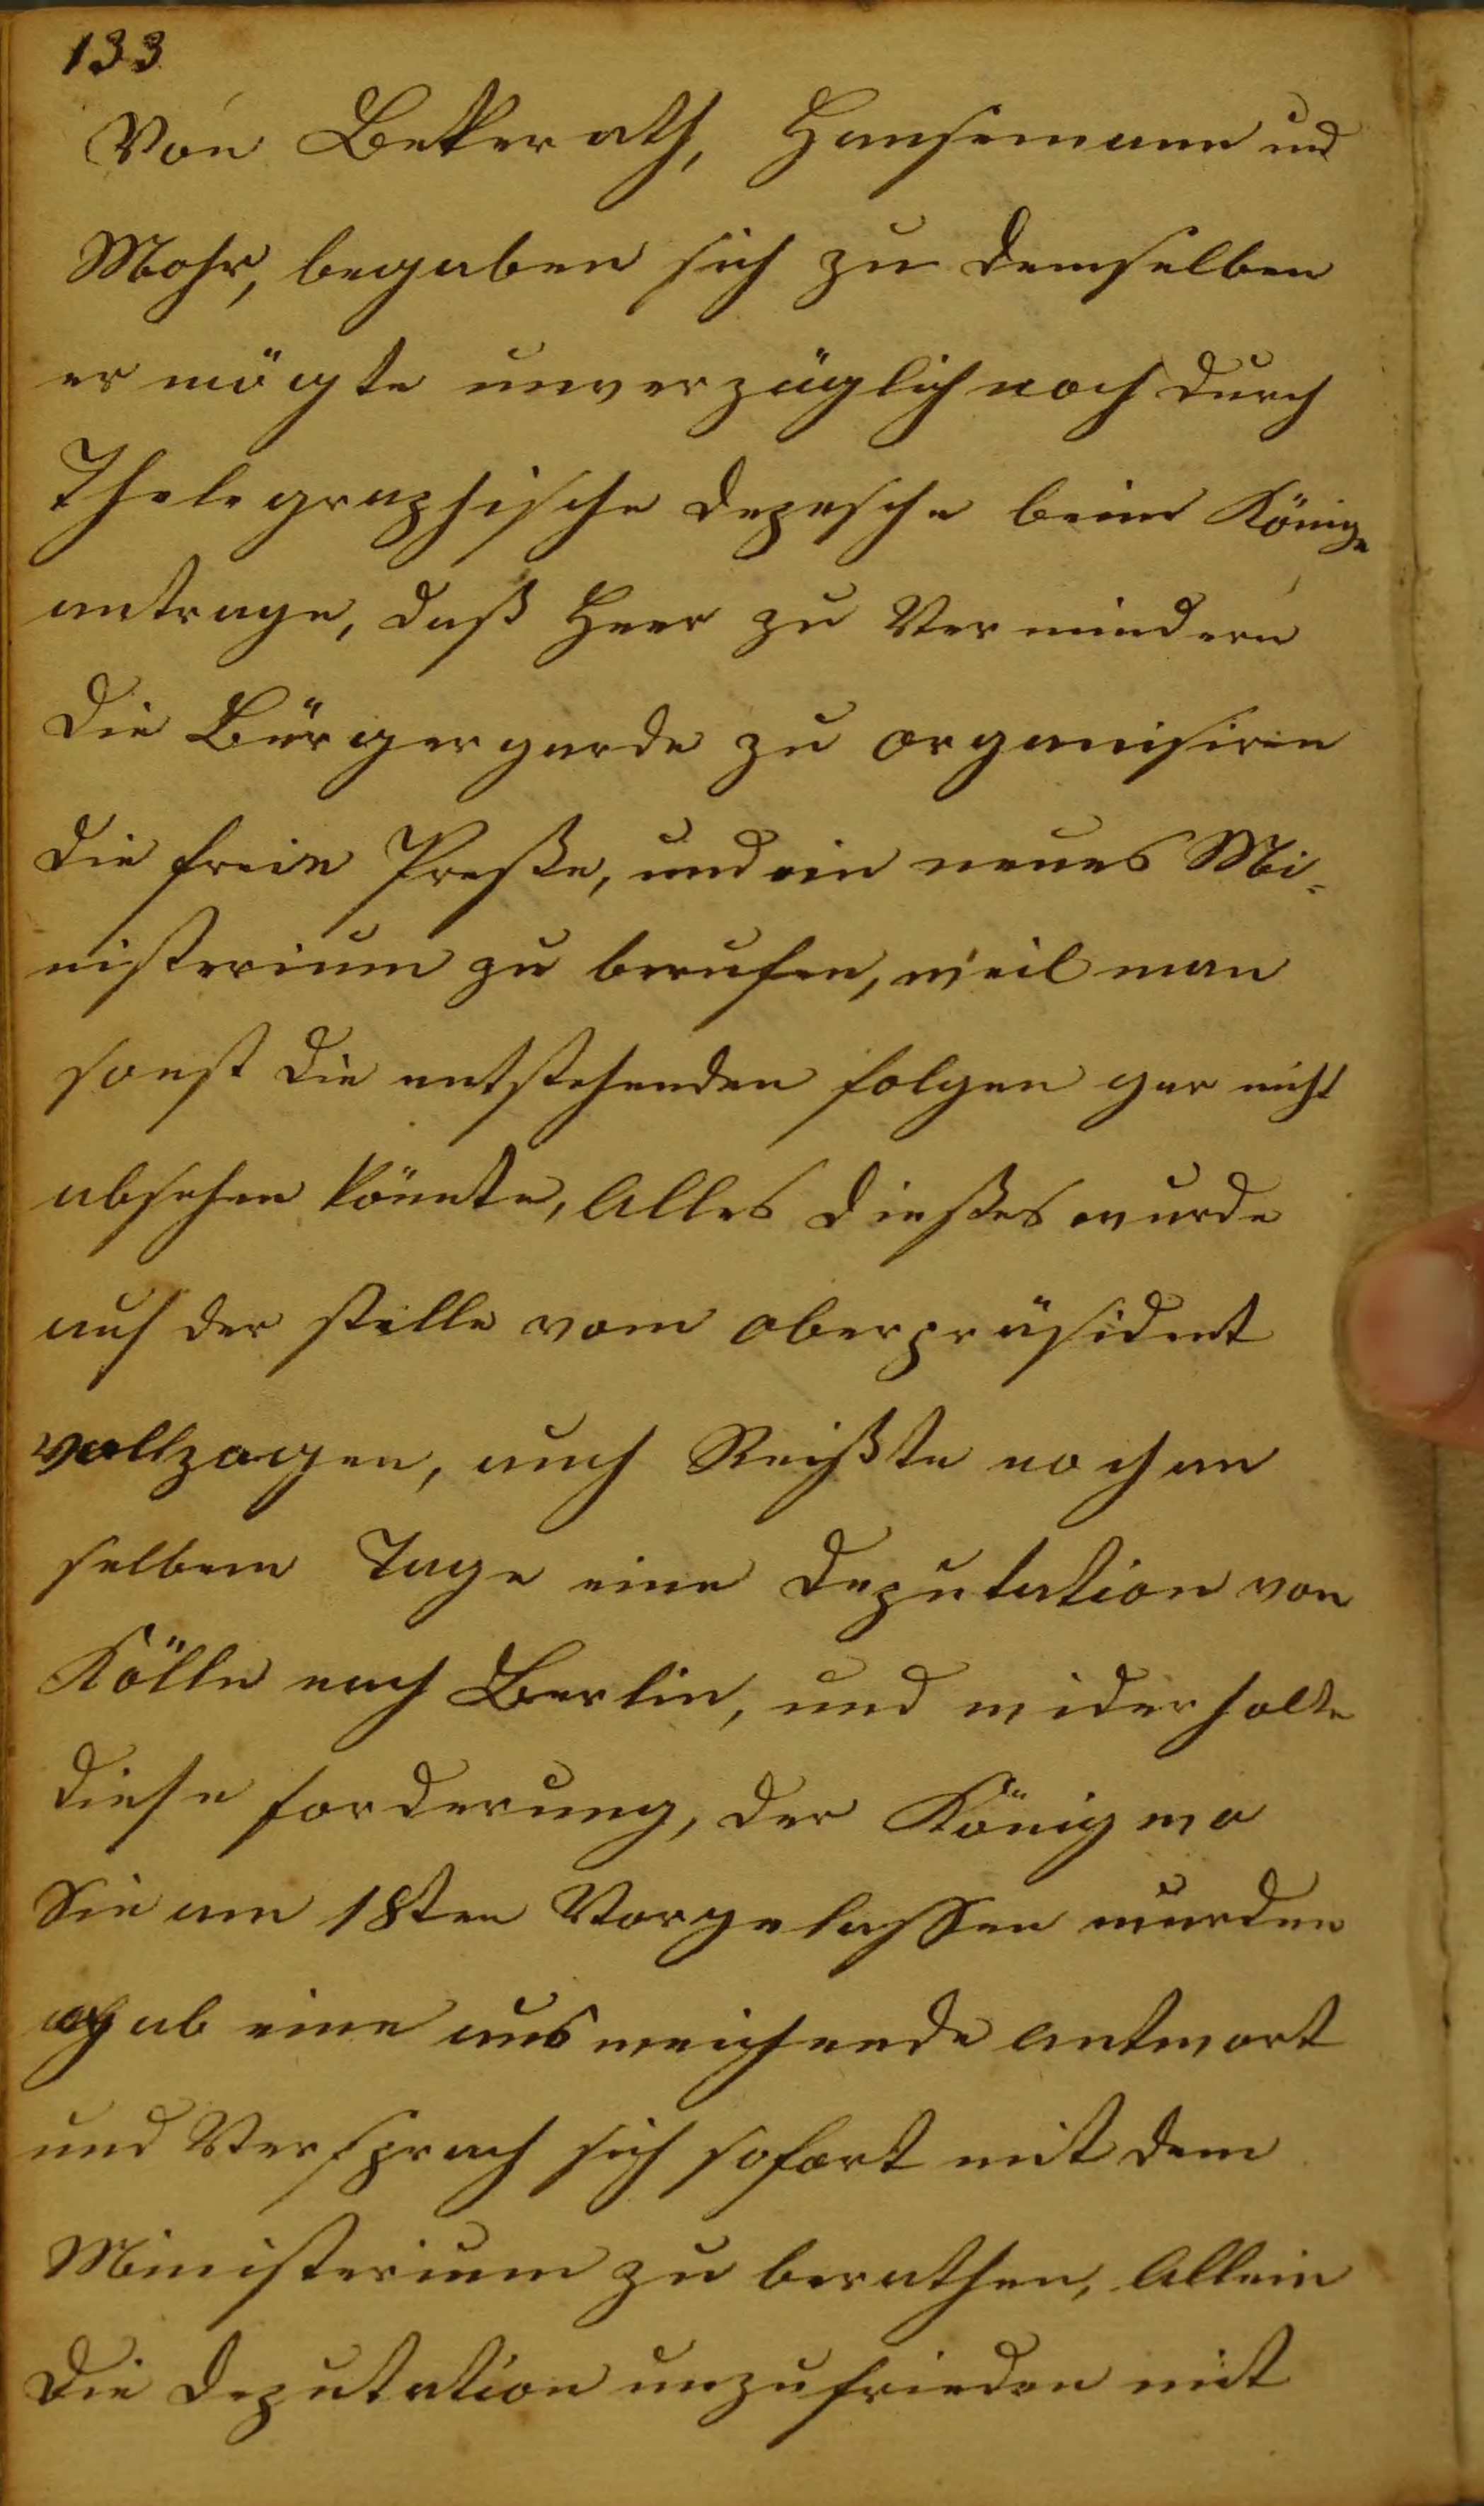 133
Von Bekerath, Hansemann und
Mohr, begaben sich zu demselben
er mögte unverzüglich noch durch
Thelegraphische depesche beim Könige
antrage, daß Heer zu Vermindern
die Bürgergarde zu organisiren
die freie Preße, und ein neues Mi-
nisterium zu berufen, weil man
sonst die entstehenden folgen gar nicht
absehen könnte, Alles dießes wurde
auf der stelle vom oberpräsident
vollzogen, auch Reißte noch am
selbem Tage eine deputation von
Kölln nach Berlin, und widerholte
diese forderung, der König wo
Sie am 18ten Vorgelassen wurden
gab eine ausweichende antwort
und Versprach sich sofort mit dem
Ministerium zu berathen, Allein
die deputation unzufrieden mit